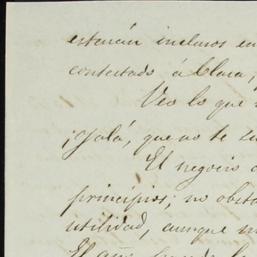 estarán inclusos en
contestado á Clara,
Veo lo que
¡Ojalá, que no te
El negocio
principios; no obsta
utilidad, aunque